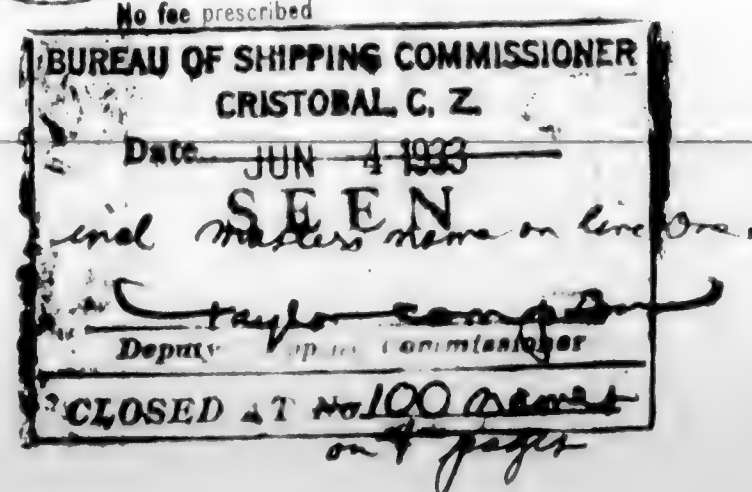 No fee prescribed
BUREAU OF SHIPPING COMMISSIONER
CRISTOBAL, C. Z.
Date JUN 4 1933
SEEN
incl masters name on line One
Taylor
Deputy Shipping Commissioner
CLOSED AT No 100 names
on 4 pages